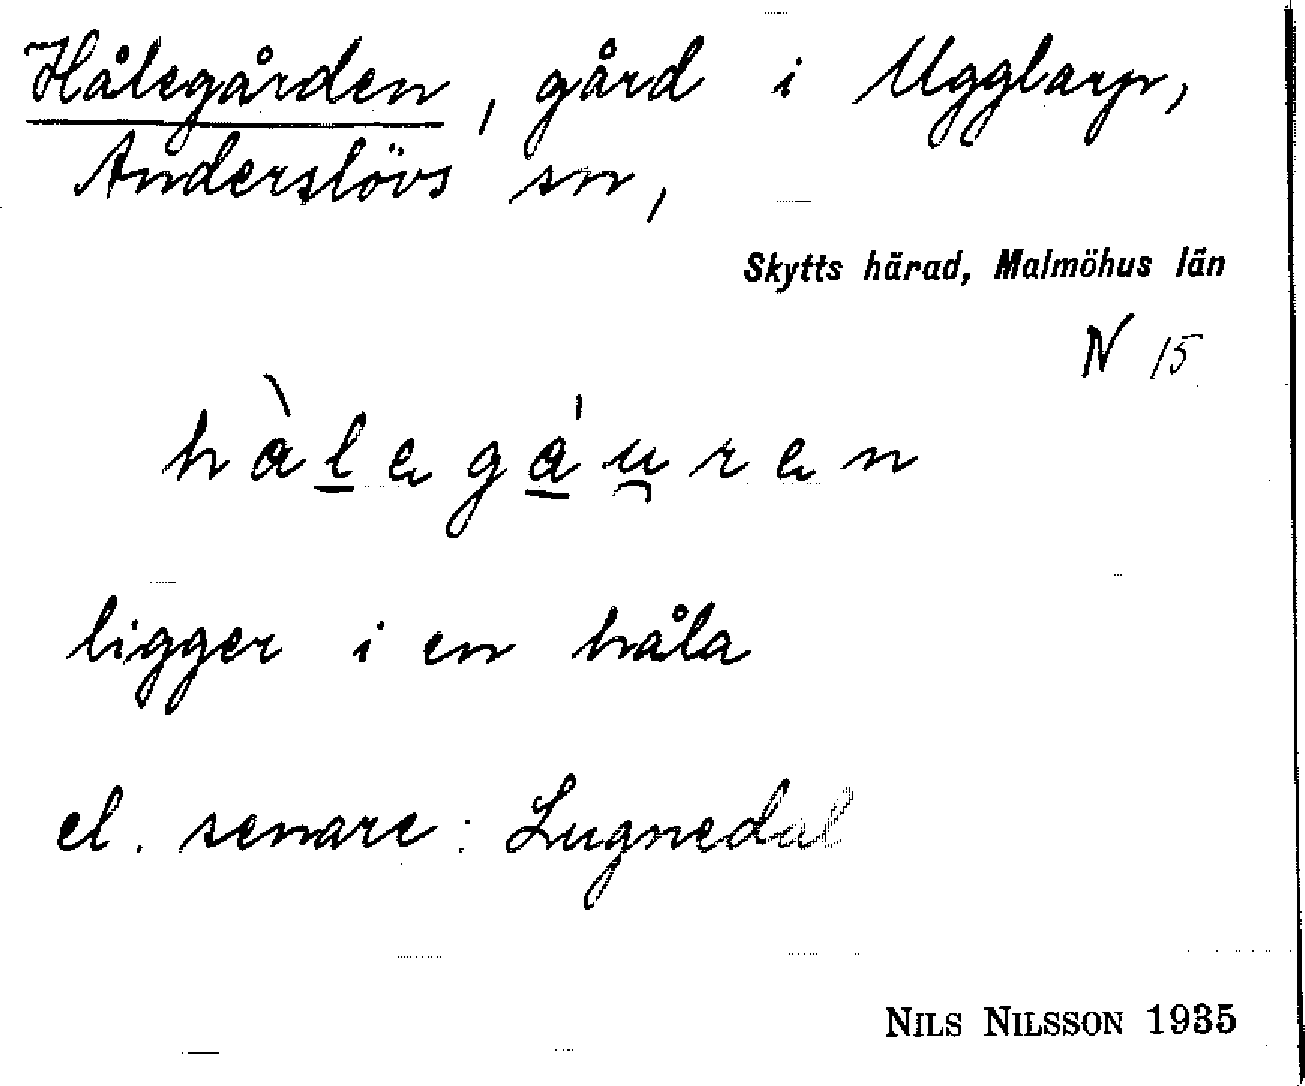 Hålegården, gård i Ugglarp,
Anderslövs sn,
Skytts härad, Malmöhus län
N 15
hàlegáu̯ren
ligger i en håla
el. senare: Lugnedal
NILS NILSSON 1935